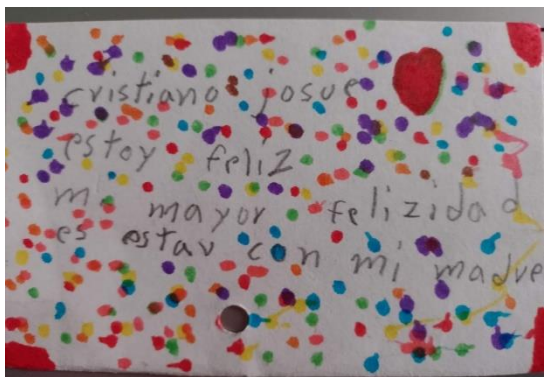 cristiano josue
estoy feliz
mi mayor felizidad
es estar con mi madre